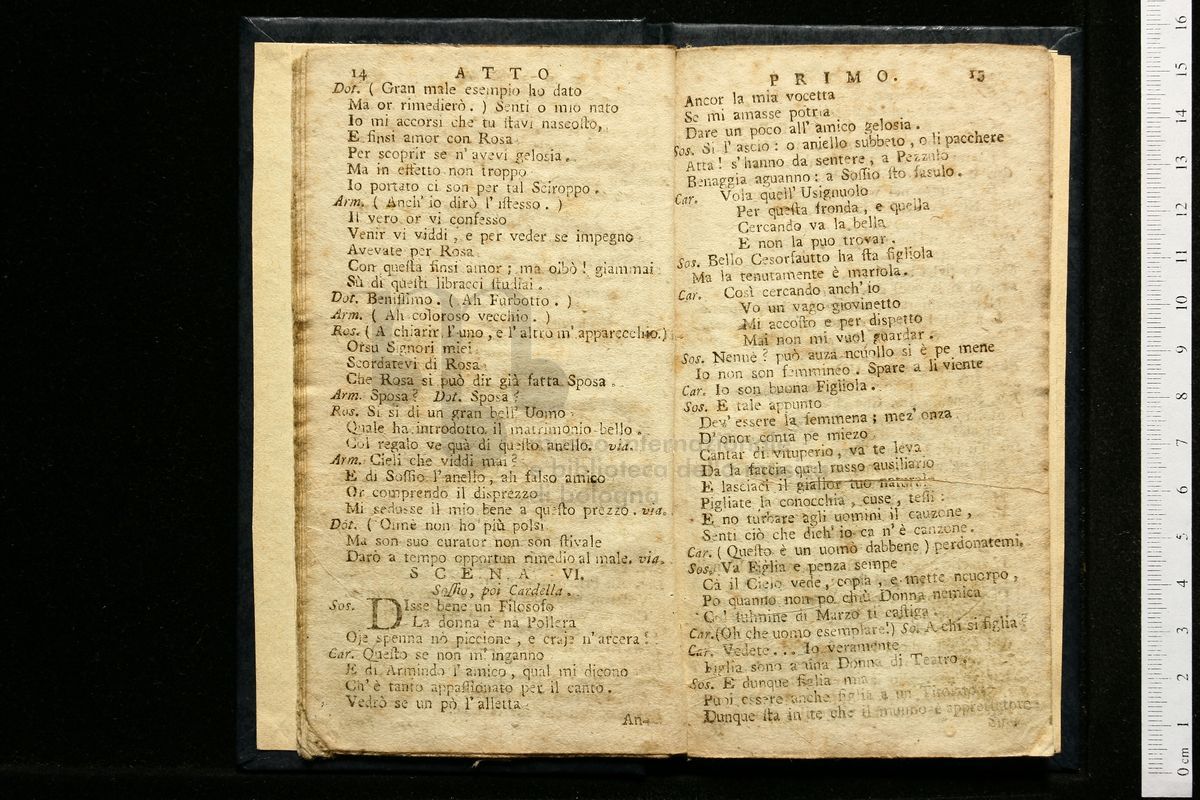 14 ATTO
Dot. ( Gran male esempio ho dato
Ma or rimedierò. ) Senti o mio nato
Io mi accorsi che tu ſtavi naſcoſto,
E finsi amor con Rosa
Per scoprir se n'avevi gelosia.
Ma in effetto non troppo
Io portato ci son per tal Sciroppo.
Arm. ( Anch' io dirò l' iſtesso. )
Il vero or vi confesso
Venir vi viddi, e per veder se impegno
Avevate per Rosa
Con queſta finsi amor; ma oibò! giammai
Sù di queſti libracci ſtudiai.
Dot. Beniſſimo. ( Ah Furbotto. )
Arm. ( Ah coloroso vecchio. )
Ros. ( A chiarir l' uno, e l' altro m' apparecchio.)
Orsù Signori miei
Scordatevi di Rosa
Che Rosa si può dir già fatta Sposa.
Arm. Sposa? Dot. Sposa?
Ros. Si si di un gran bell' Uomo
Quale ha introdotto il matrimonio bello.
Col regalo ve quà di queſto anello. via.
Arm. Cieli che viddi mai?
E di Soſſio l' anello, ah falso amico
Or comprendo il disprezzo
Mi sedusse il mio bene a queſto prezzo. via.
Dot. ( Oimè non ho più polsi
Ma son suo curator non son ſtivale
Darò a tempo opportun rimedio al male. via.
SCENA VI.
Soſſio, poi Cardella.
Sos. DIsse bene un Filosofo
La donna è na Pollera
Oje spenna nò piccione, e craje n' arcera!
Car. Queſto se non m' inganno
E di Armindo l' amico, qual mi dicono
Ch' è tanto appaſſionato per il canto.
Vedrò se un pò l' alletta
An-
PRIMO. 15
Ancor la mia vocetta
Se mi amasse potria
Dare un poco all' amico gelosia.
Sos. Si l' ascio: o aniello subbeto, o li pacchere
Atta! s' hanno da sentere, a Pezzulo
Benaggia aguanno: a Soſſio ſto fasulo.
Car. Vola quell' Usignuolo
Per queſta fronda, e quella
Cercando va la bella
E non la puo trovar.
Sos. Bello Cesorfautto ha ſta figliola
Ma la tenutamente è mariola.
Car. Così cercando anch' io
Vo un vago giovinetto
Mi accoſto e per dispetto
Mai non mi vuol guardar.
Sos. Nenne? può auza ncuollo si è pe mene
Io non son femmineo. Spare a li viente
Car. Io son buona Figliola.
Sos. E tale appunto
Dev' essere la femmena; mez' onza
D' onor conta pe miezo
Cantar di vituperio, va te leva
Da la faccia quel russo ausiliario
E lasciaci il giallor tuo naturale
Pigliate la conocchia, cuse, teſſi:
E no turbare agli uomini il cauzone,
Senti ciò che dich' io ca n' è canzone.
Car. ( Queſto è un uomo dabbene ) perdonatemi.
Sos. Va Figlia e penza sempe
Cà il Cielo vede, copia, e mette ncuorpo,
Pò quanno non po chiù Donna nemica
Col fulmine di Marzo ti caſtiga.
Car.(Oh che uomo esemplare!) So. A chi si figlia?
Car. Vedete... Io veramente
Figlia sono a una Donna di Teatro.
Sos. E dunque figlia mia
Puoi essere anche figlia a un
Dunque ſta in te che il munno è